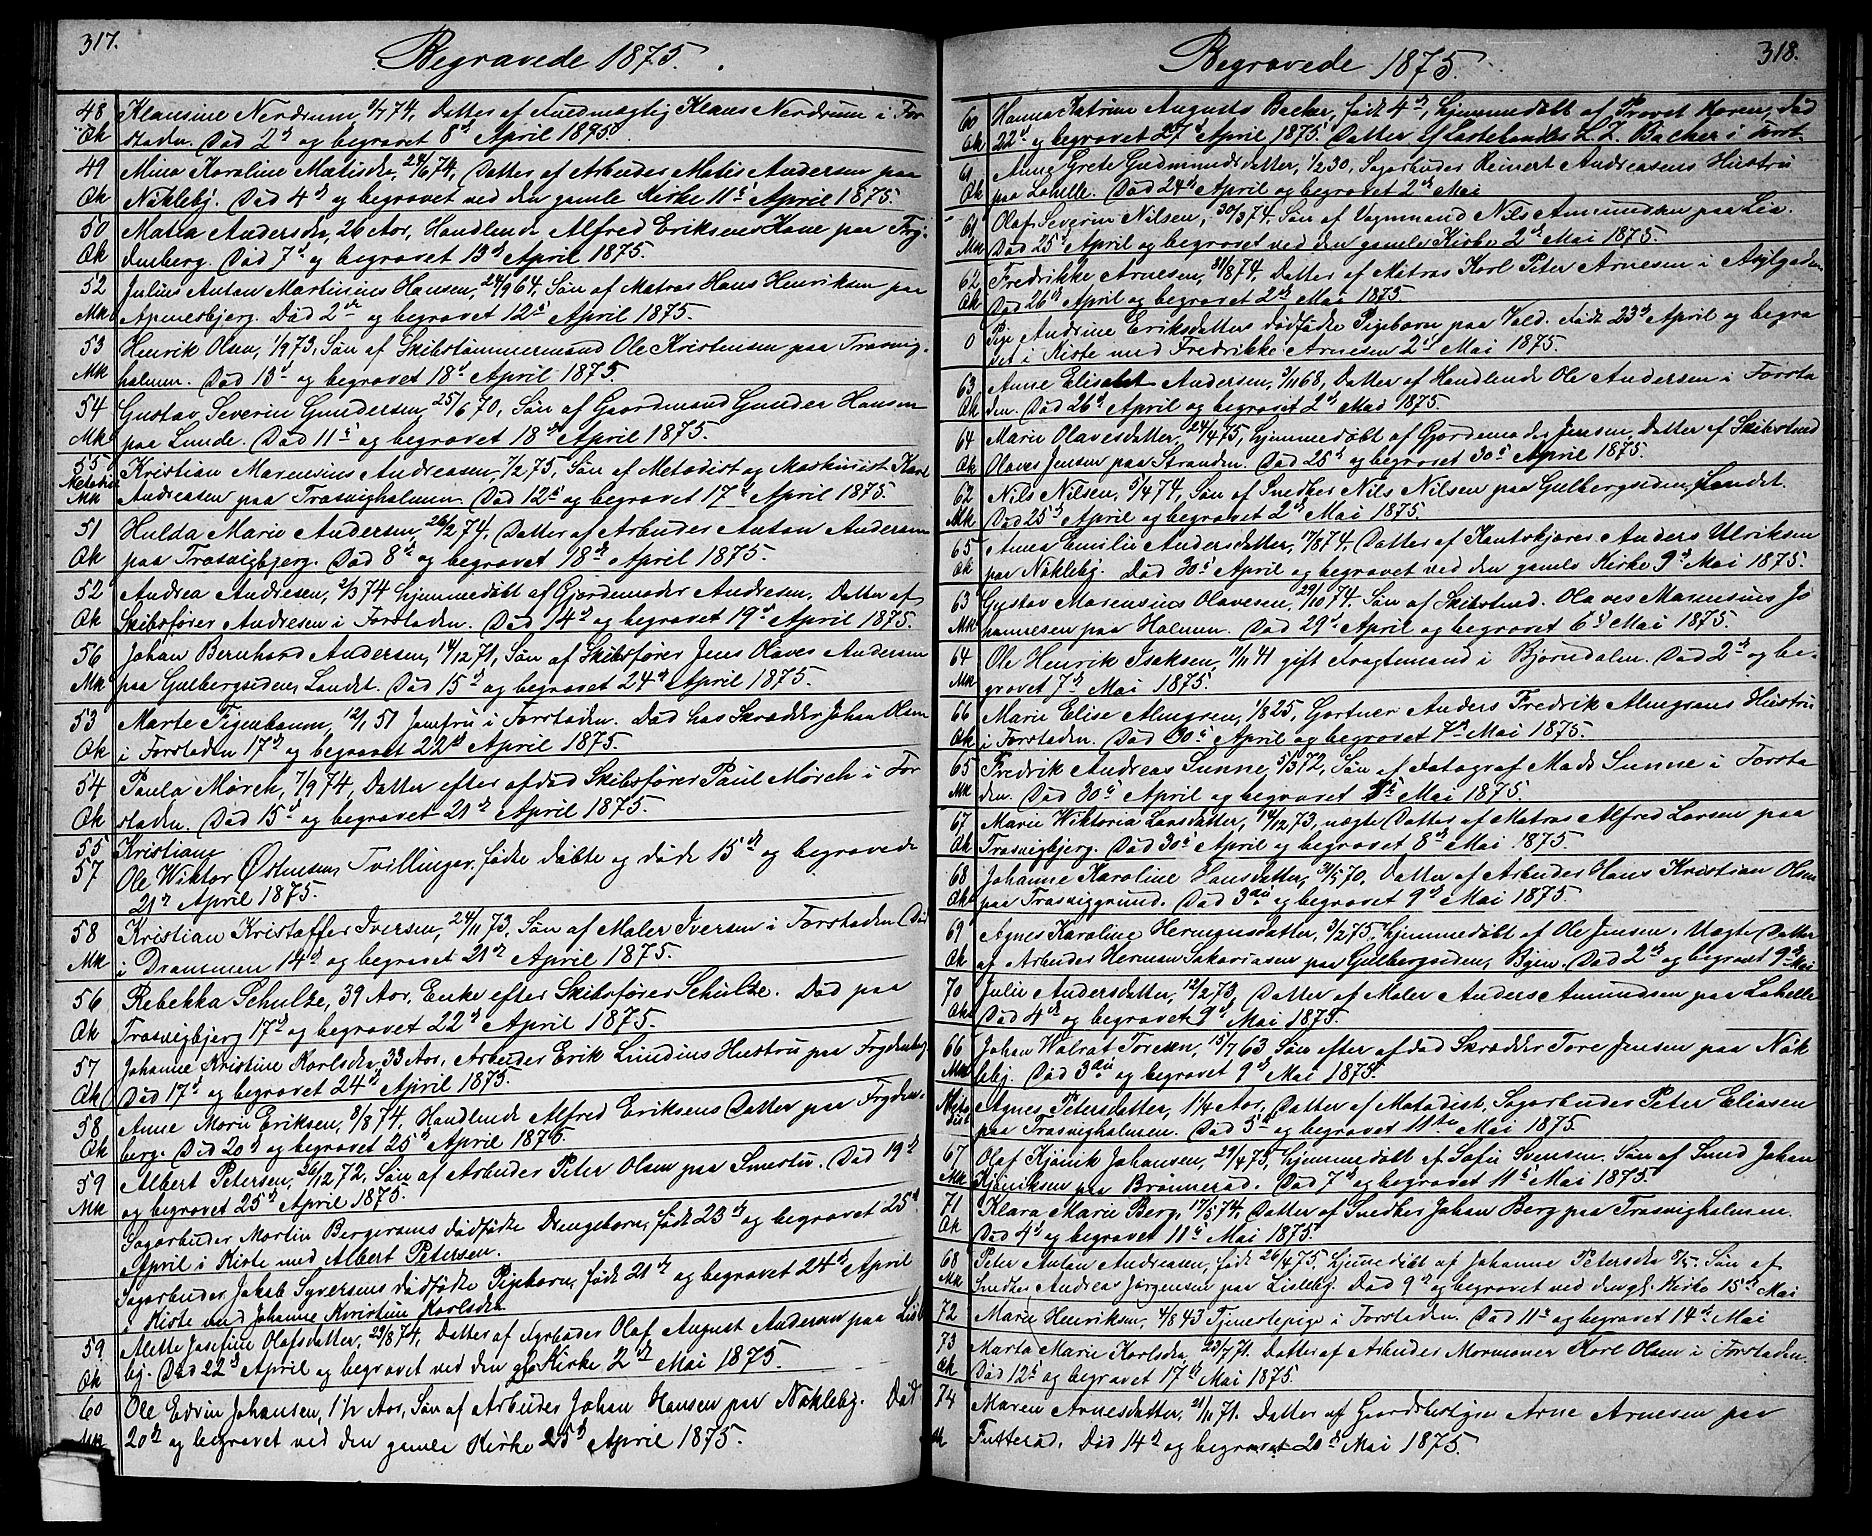 317.
Begravede 1875.
48 Klausine Nerdrum, 9/7 74, Datter af Fuldmægtig Klaus Nerdrum i For-
Qk staden. Død 2d og begravet 8d April 1895
49 Mina Karoline Matisda, 24/6 74, Datter af Arbeider Matis Andersen paa
Qk Nøkleby. Død 4d og begravet ved den gamle Kirke 11t April 1875.
50 Maria Andersda, 26 Aar, Handlende Alfred Eriksens Kone paa Fry-
Qk denberg. Død 7d og begravet 13d April 1875.
52 Julius Anton Martinius Hansen, 24/9 64. Søn af Matros Hans Henriksen paa
Mk Apenesbjerg. Død 2d og begravet 12t April 1875.
53 Henrik Olsen, 1/9 73, Søn af Skibstømmermand Ole Kristensen paa Trosvig-
Mk holmen. Død 13d og begravet 18d April 1875.
54 Gustav Severin Gundersen, 25/6 70, Søn af Gaardmand Gunder Hansen
Mk paa Lunde. Død 11t og begravet 18d April 1875.
55 Kristian Marenius Andreasen, 7/2 75, Søn af Metodist og Maskinist Karl
Metodist
Mk Andreasen paa Trosvigholmen. Død 12t og begravet 17d April 1875.
51 Hulda Marie Andersen, 26/2 74, Datter af Arbeider Anton Andersen
Qk paa Trosvigbjerg. Død 8d og begravet 18d April 1875.
52 Andrea Andresen, 2/3 74 hjemmedøbt af Gjordemoder Andresen, Datter af
Qk Skibsfører Andresen i Forstaden. Død 14d og begravet 19d April 1875.
56 Johan Bernhard Andersen, 14/12 71, Søn af Skibsfører Jens Olaves Andersen
Mk paa Gulbergsiden, Landet. Død 15d og begravet 24d April 1875.
53 Marte Tigenbaum, 12/1 51 Jomfru i Forstaden. Død hos Skrædder Johan Olsen
Qk i Forstaden 17d og begravet 22d April 1875.
54 Paula Mørch, 7/9 74, Datter efter afdød Skibsfører Paul Mørch i For
Qk staden. Død 15d og begravet 21d April 1875.
55 Kristiane
57 Ole Wiktor Østensen, Tvillinger, fødte døbte og døde 15d og begravede
21d April 1875.
58 Kristian Kristoffer Iversen, 24/11 73, Søn af Maler Iversen i Forstaden Død
Mk i Drammen 14d og begravet 21d April 1875.
56 Rebekka Schultze, 39 Aar, Enke efter Skibsfører Schultze. Død paa
Qk Trosvigbjerg 17d og begravet 22d April 1875.
57 Johanne Kristine Karlsda, 33 Aar, Arbeider Erik Lindius Hustru paa Frydenberg
Qk Død 17d og begravet 24d April 1875.
58 Anne Marie Eriksen, 8/8 74, Handlende Alfred Eriksens Datter paa Fryden-
Qk berg. Død 20d og begravet 25d April 1875.
59 Albert Petersen, 26/12 72, Søn af Arbeider Peter Olsen paa Smertu. Død 19d
Mk og begravet 25d April 1875.
Sagarbeider Martin Bergersens dødfødte Drengebarn, født 23d og begravet 25d
April i Kiste med Albert Petersen.
Sagarbeider Jakob Syversens dødfødte Pigebarn, født 21d og begravet 24d April
i Kiste med Johanne Kristine Karlsda
59 Alette Josefine Olafsdatter, 29/8 74, Datter af Arbeider Olaf August Andersen paa Lisle
Qk by. Død 22d April og begravet ved den gl Kirke 2d Mai 1875.
60 Ole Edvin Johansen, 1 1/2 Aar, Søn af Arbeider Johan Hansen paa Nøkleby. Død
Mk 20d og begravet ved den gamle Kirke 25d April 1875.
318.
Begravede 1875
60 Hanna Katrine Augusta Bacher, født 4d, hjemmedøbt af Provst Horen, Død
Qk 22d og begravet 27d April 1875. Datter af L. Z. Bacher i Forst-
61 Anne Grete Gudmundsdatter, 1/2 30, Sagarbeider Reinert Andreasens Hustru
Qk paa Lahelle. Død 24d April og begravet 2d Mai
61 Olaf Severin Nilsen, 30/3 74, Søn af Vognmand Nils Amundsen paa Lia.
Mk Død 25d April og begravet ved den gamle Kirke 2d Mai 1875.
62 Fredrikke Arnesen, 31/8 74, Datter af Matros Karl Peter Arnesen i
Qk Død 26d April og begravet 2d Mai 1875
0 Pige Andrine Eriksdatters dødfødte Pigebarn paa Vold. Født 23d April og begra
vet i Kiste med Fredrikke Arnesen 2d Mai 1875.
63 Anne Elisabet Andersen, 3/11 68, Datter af Handlende Ole Andersen i Forsta
Qk den. Død 26d April og begravet 2d Mai 1875.
64 Marie Olavesdatter, 24/4 75, hjemmedøbt af Gjordemoder Jensen, Datter af Skibstmd
Qk Olaves Jensen paa Stranden. Død 25d og begravet 30d April 1875.
62 Nils Nilsen, 5/4 74, Søn af Snedker Nils Nilsen paa Gulbergsiden, Landet.
Mk Død 25d April og begravet 2d Mai 1875.
65 Anna Emilie Andersdatter, 17/8 74. Datter af Anders Ulriksen
Qk paa Nøkleby. Død 30t April og begravet ved den gamle Kirke 9d Mai 1875.
63 Gustav Marensius Olavesen, 29/10 74. Søn af Skibstmd. Olaves Marensius Jo
Mk hannesen paa Holmen. Død 29d April og begravet 6d Mai 1875.
64 Ole Henrik Isaksen, 11/11 41 gift Fragtemand i Bjørndalen. Død 2d og be-
Mk gravet 7d Mai 1875.
66 Marie Elise Almgren, 1/8 25, Gartner Anders Fredrik Almgrens Hustru
Qk i Forstaden. Død 30t April og begravet 7d Mai 1875.
65 Fredrik Andreas Sunne, 5/3 72, Søn af Fotograf Mads Sunne i Forsta
Mk den. Død 30t April og begravet Mai 1875.
67 Marie Wiktoria Larsdatter, 14/12 73, uægte Datter af Matros Alfred Larsen paa
Qk Trosvigbjerg. Død 30t April og begravet 8d Mai 1875.
68 Johanne Karoline Hansdatter, 31/5 70. Datter af Arbeider Hans Kristian Olsen
Qk paa Trosviggrund. Død 3die og begravet 9d Mai 1875.
69 Agnes Karoline Hermansdatter, 3/2 75, hjemmedøbt af Ole Jensen. Uægte Datter
Qk af Arbeider Herman Sakariasen paa Gulbergsiden, Byen. Død 2d og begravet 9d Mai
70 Julie Andersdatter, 12/2 73, Datter af Maler Anders Amundsen paa Lahelle
Qk Død 4d og begravet 9d Mai 1875.
66 Johan Walrat Toresen, 15/7 63 Søn efter afdød Skrædder Tore Jensen paa Nøk
Mk leby. Død 3die og begravet 9d Mai 1875.
Metodist Agnes Petersdatter, 1 1/4 Aar, Datter af Metodist, Sagarbeider Peter Eliasen
paa Trosvigholmen. Død 5d og begravet 11te Mai 1875.
67 Olaf Kjønik Johansen, 29/4 75, hjemmedøbt af Sofie Svensen. Søn af Smed Johan
Mk Kjøniksen paa Brønnerød. Død 7d og begravet 11t Mai 1875.
71 Klara Marie Berg, 17/5 74, Datter af Snedker Johan Berg paa Trosvigholmen.
Qk Død 4d og begravet 11t Mai 1875.
68 Peter Anton Andreasen, født 26/4 75, hjemmedøbt af Johanne Petersda 8/5. Søn af
Mk Snedker Andreas Jørgensen paa Lisleby. Død 9d og begravet ved den gl. Kirke 15d Mai
72 Marie Henriksen, 4/8 43 Tjenestepige i Forstaden. Død 11t og begravet 14d Mai
73 Marta Marie Karlsda, 23/7 71. Datter af Arbeider Mormoner Karl Olsen i Forstaden.
Qk Død 12t og begravet 17d Mai 1875.
74 Maren Arnesdatter, 21/11 71. Datter af Gaardbestyrer Arne Arnesen paa
Qk Tutterød. Død 14d og begravet 20d Mai 1875.